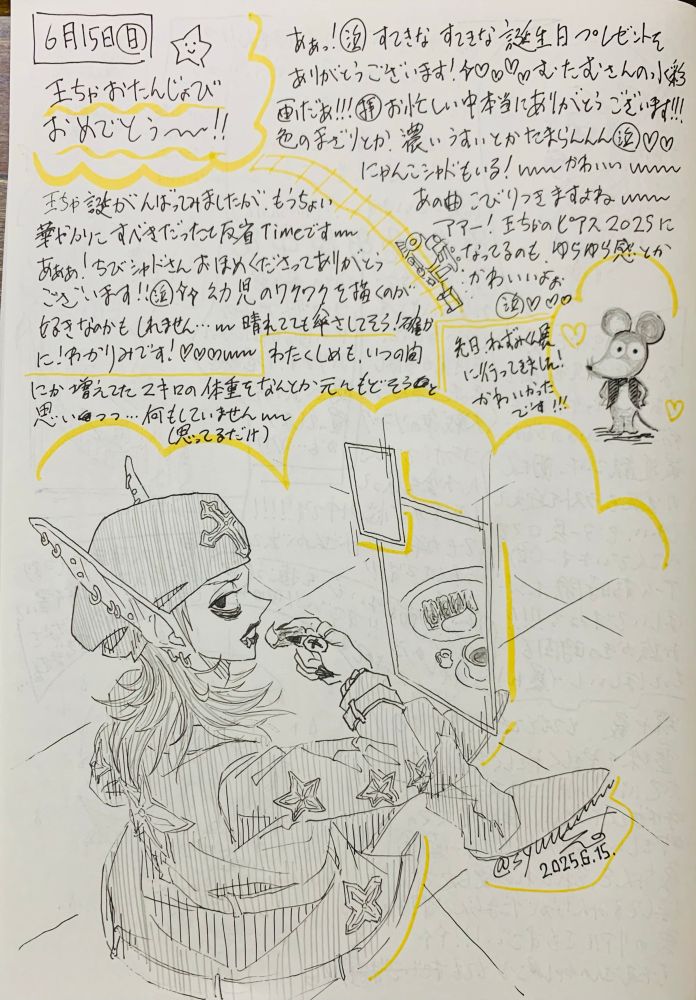 6月15日(日)
王ちゃおたんじょび
おめでとう〜〜!!
あぁっ!(泣)すてきな すてきな 誕生日プレゼントを
ありがとうございます!今♡♡♡♡ むたむさんの水彩
画だぁ!!!(拝)お忙しい中本当にありがとうございます!!!
色のまざりとか 濃い うすいとか たまらんんん(泣)♡♡
にゃんこシャドもいる! かわいい
あの曲 こびりつきますよね
アァー!王ちゃのピアス2025に
なってるのも、ゆらゆら感とか
かわいいよぉ
(泣)♡♡♡
王ちゃ誕がんばってみましたが、もうちょい
華やかりに すべきだったと反省timeです
あぁぁ!ちびシャドさん おほめくださってありがとう
ございます!!(泣) 幼児のワクワクを描くのが
好きなのかもしれません… 晴れてても傘さしてそう!確か
に!わかりみです!♡♡♡ わたくしめも、いつの間
にか 増えてた 2キロの体重をなんとか元にもどそうと
思いつつ…何もしていません
(思ってるだけ)
先日 ねずみくん展
に行ってきました!
かわいかった
です!!!
2025.6.15.